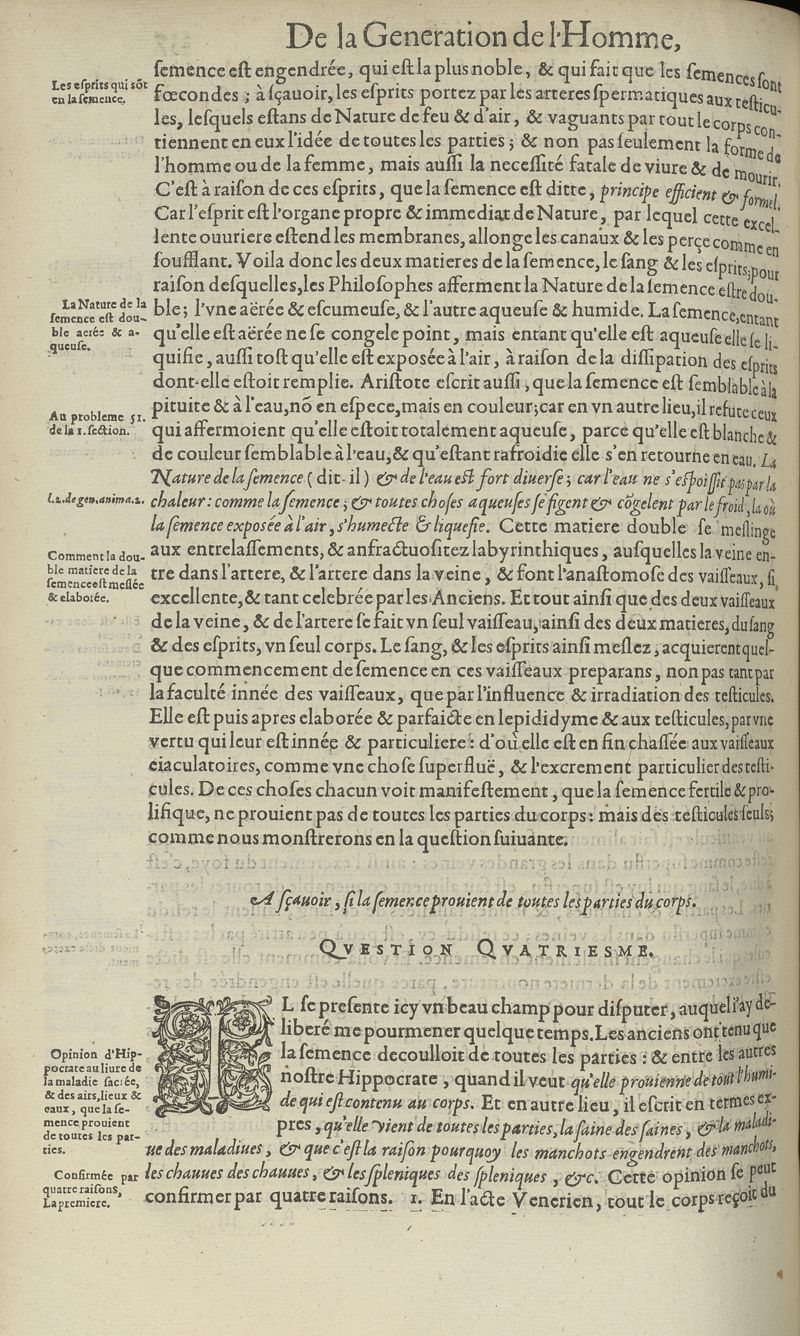 De la Generation de l'Homme,
ſemence eſt engendrée, qui eſt la plus noble, & qui fait que les ſemences ſont
Les eſprits qui sõt
en la ſemence.
fœcondes ; à ſçauoir, les eſprits portez par les arteres ſpermatiques aux teſticu-
les, leſquels eſtans de Nature de feu & d'air, & vaguants par tout le corps con-
tiennent en eux l'idée de toutes les parties ; & non pas ſeulement la forme de
l'homme ou de la femme, mais auſſi la neceſſité fatale de viure & de mourir.
C'eſt à raiſon de ces eſprits, que la ſemence eſt ditte, principe efficient & formel.
Car l'eſprit eſt l'organe propre & immediat de Nature, par lequel cette excel-
lente ouuriere eſtend les membranes, allonge les canaux & les perçe comme en
ſoufflant. Voila donc les deux matieres de la ſemence, le ſang & les eſprits, pour
raiſon deſquelles, les Philoſophes afferment la Nature de la ſemence eſtre dou-
La Nature de la
ſemence eſt dou-
ble aerée & a-
queuſe.
ble ; l'vne aërée & eſcumeuſe, & l'autre aqueuſe & humide. La ſemence, entant
qu'elle eſt aërée ne ſe congele point, mais entant qu'elle eſt aqueuſe elle ſe li-
quifie, auſſi toſt qu'elle eſt exposée à l'air, à raiſon de la diſſipation des eſprits
dont-elle eſtoit remplie. Ariſtote eſcrit auſſi, que la ſemence eſt ſemblable à la
Au probleme 51.
de la 1. ſection.
pituite & à l'eau, nõ en eſpece, mais en couleur ; car en vn autre lieu, il refute ceux
qui affermoient qu'elle eſtoit totalement aqueuſe, parce qu'elle eſt blanche &
de couleur ſemblable à l'eau, & qu'eſtant rafroidie elle s'en retourne en eau. La
Nature de la ſemence ( dit-il ) & de l'eau eſt fort diuerſe ; car l'eau ne s'eſpoiſſit pas par la
l. 2. de gen. anima. 2.
chaleur : comme la ſemence ; & toutes choſes aqueuſes ſe figent & cõgelent par le froid, la où
la ſemence exposée à l'air, s'humecte & liquefie. Cette matiere double ſe meſlinge
Comment la dou-
ble matiere de la
ſemence eſt meſlée
& elaborée.
aux entrelaſſements, & anfractuoſitez labyrinthiques, auſquelles la veine en-
tre dans l'artere, & l'artere dans la veine, & font l'anaſtomoſe des vaiſſeaux, ſi
excellente, & tant celebrée par les Anciens. Et tout ainſi que des deux vaiſſeaux
de la veine, & de l'artere ſe fait vn ſeul vaiſſeau, ainſi des deux matieres, du ſang
& des eſprits, vn ſeul corps. Le ſang, & les eſprits ainſi meſlez, acquierent quel-
que commencement de ſemence en ces vaiſſeaux preparans, non pas tant par
la faculté innée des vaiſſeaux, que par l'influence & irradiation des teſticules.
Elle eſt puis apres elaborée & parfaicte en lepididyme & aux teſticules, par vne
vertu qui leur eſt innée & particuliere : d'où elle eſt en fin chaſſée aux vaiſſeaux
eiaculatoires, comme vne choſe ſuperfluë, & l'excrement particulier des teſti-
cules. De ces choſes chacun voit manifeſtement, que la ſemence fertile & pro-
lifique, ne prouient pas de toutes les parties du corps : mais des teſticules ſeuls;
comme nous monſtrerons en la queſtion ſuiuante.
A ſçauoir, ſi la ſemence prouient de toutes les parties du corps.
QVESTION QVATRIESME.
IL ſe preſente icy vn beau champ pour diſputer, auquel i'ay de-
liberé me pourmener quelque temps. Les anciens ont tenu que
Opinion d'Hip-
pocrate au liure de
la maladie ſacrée,
& des airs, lieux &
eaux, que la ſe-
mence prouient
de toutes les par-
ties.
la ſemence decoulloit de toutes les parties : & entre les autres
noſtre Hippocrate, quand il veut qu'elle prouienne de tout l'humi-
de qui eſt contenu au corps. Et en autre lieu, il eſcrit en termes ex-
pres, qu'elle vient de toutes les parties, la ſaine des ſaines, & la maladi-
ue des maladiues, & que c'eſt la raiſon pourquoy les manchots engendrent des manchots,
Confirmée par
quatre raiſons.
La premiere.
les chauues des chauues, & les ſpleniques des ſpleniques, &c. Cette opinion ſe peut
confirmer par quatre raiſons. 1. En l'acte Venerien, tout le corps reçoit du